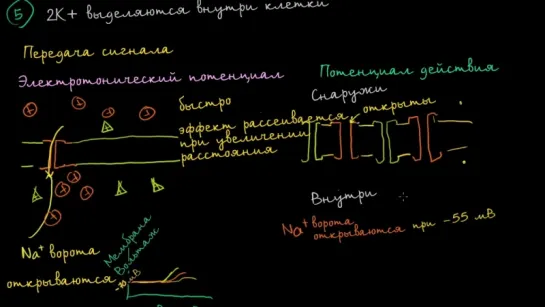 5 2K+ выделяются внутри клетки
Передача сигнала
Электротонический потенциал
быстро
эффект рассеивается
при увеличении
расстояния
Na+ ворота
открываются
Мембрана
Вольтаж
мВ
Потенциал действия
Снаружи
открыты
Внутри
Na+ ворота
открываются при -55 мВ